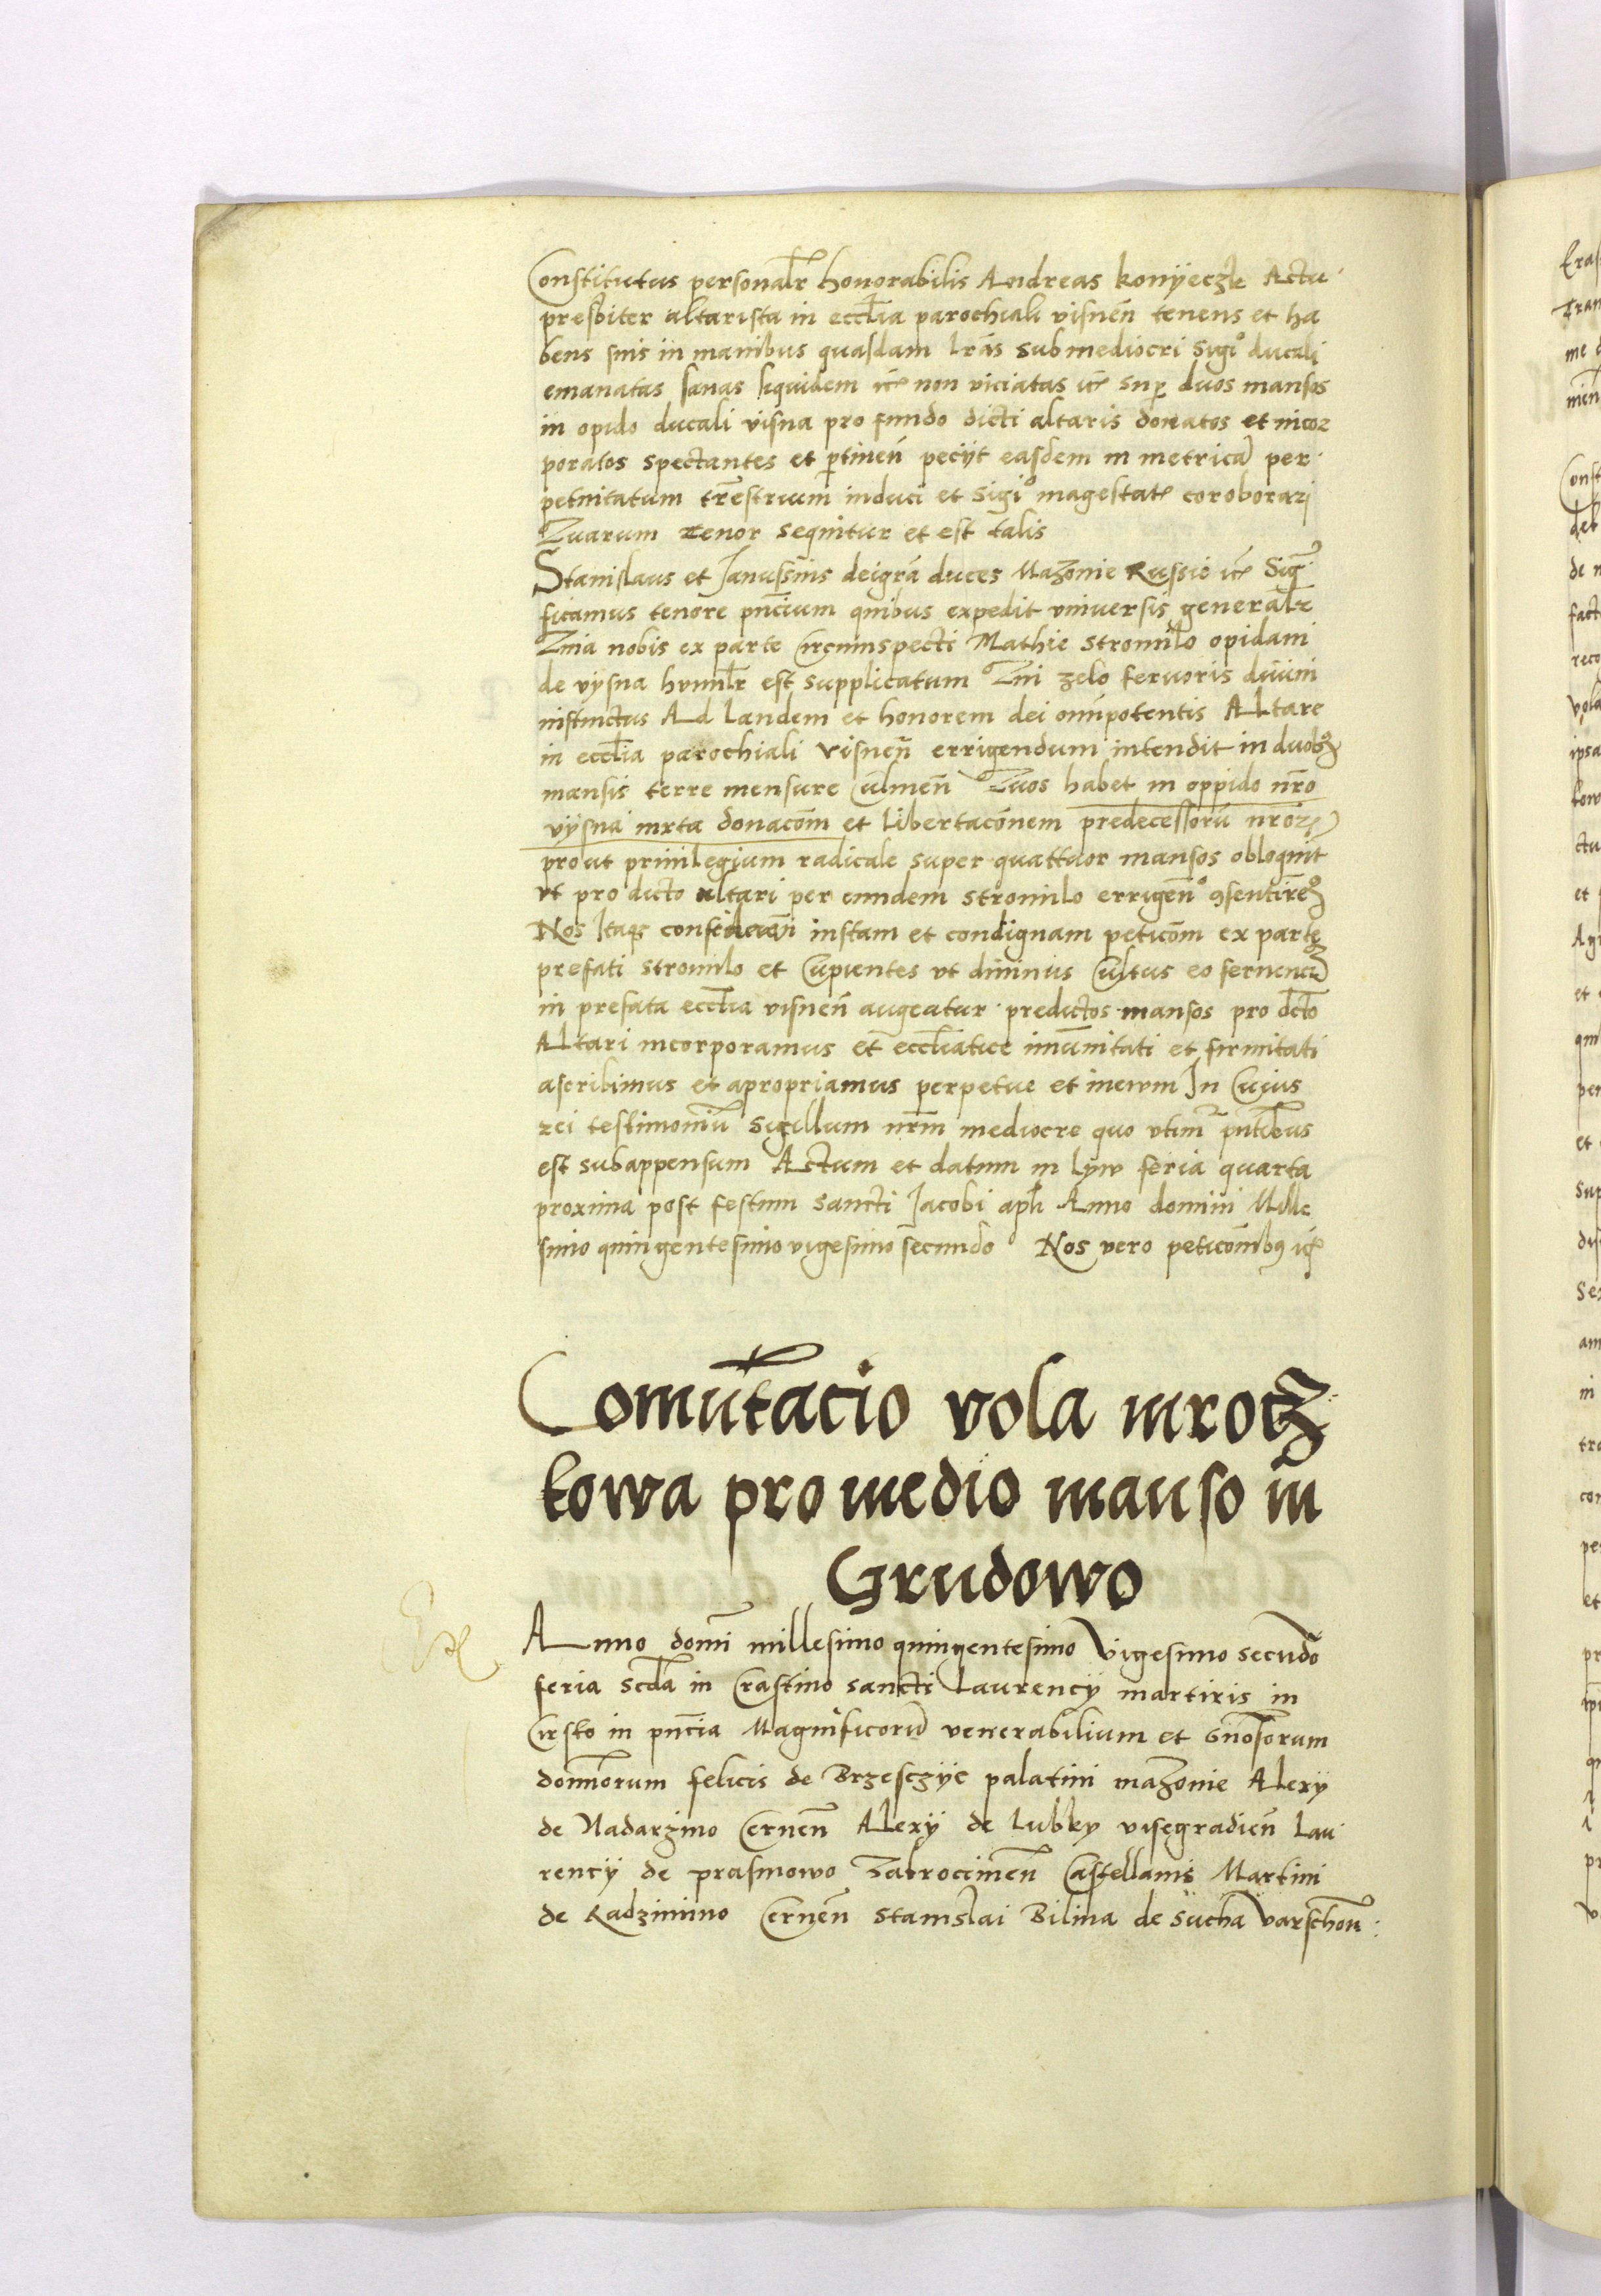 Constitutus personalr honorabilis Andreas konÿeczke Actu
presbiter altarista in eccl̃ia parochiali visneñ tenens et ha
bens suis in manibus quasdam l̃ras sub mediocri sigᵒ ducali
emanatas sanas siquidem etc non viciatas etc sup duos mansos
in opido ducali visna pro fundo dicti altaris donatos et incor
poratos spectantes et ptineñ peciÿt easdem in metricã per
petuitatum tr̃estrium induci et sigiᵒ magestatꝭ coroborari
Quarum tenor sequitur et est talis
Stanislaus et Janussius dei gr̃a duces Mazonie Russie etc Sig
ficamus tenore pñcium quibus expedit vniuersis generalr
Quia nobis ex parte Circumspecti Mathie stromilo opidani
de vysna humilr est supplicatum Qui zelo feruoris diuini
instinctus Ad laudem et honorem dei om̃ipotentis Altare
in eccl̃ia parochiali visneñ errigendum intendit in duobꝫ
mansis terre mensure Culmeñ Quos habet in oppido nr̃o
vÿsna iuxta donacõm et libertacõnem predecessorũ nr̃oꝝ
prout priuilegium radicale super quattuor mansos obloquit
vt pro dicto altari per eundem stromilo errigenᵒ ꝯsentiremꝰ
Nos Itaqꝫ considerañ iustam et condignam peticõm ex parte
prefati stromilo et Cupientes vt diuinus Cultus eo
in prefata eccl̃ia visneñ augeatur predictos mansos pro dc̃to
Altari incorporamus et eccl̃iatice imũnitati et firmitati
ascribimus et apropriamus perpetue et ineuum In Cuius
rei testimoniũ sigillum nr̃m mediocre quo vtimr pñtibus
est subappensum Actum et datum in lyw feria quarta
proxima post festum sancti Jacobi apl̃i Anno domini Mille
simo quingentesimo vigesimo secundo Nos vero peticõnibꝰ etc
Comũtacio vola mrocz
kowa pro medio manso in
Grudowo
Anno domĩ millesimo quingentesimo Vigesimo secũdo
feria scd̃a in Crastino sancti Laurencÿ martiris in
Cirsko in pñcia Magnificorũ venerabilium et gñosorum
domĩorum felicis de Brzesczÿe palatini mazonie Alexÿ
de Nadarzino Cerneñ Alexÿ de lubky visegradieñ Lau
rencÿ de prasmowo Zakrocimeñ Castellanis Martini
de Radzimino Cerneñ stanislai Bilina de Sucha Varschouñ